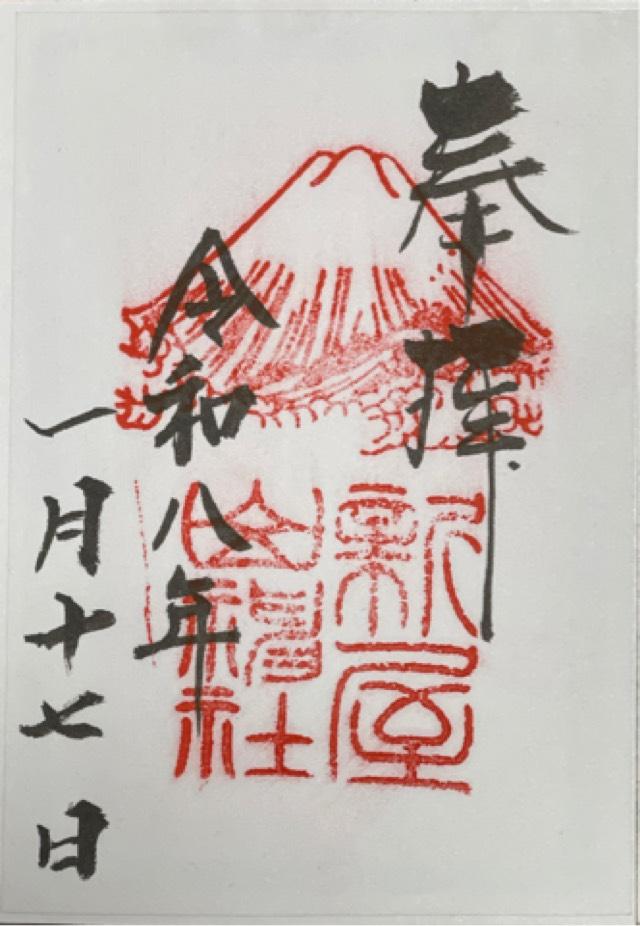 奉拝
新屋
山神社
令和八年
一月十七日